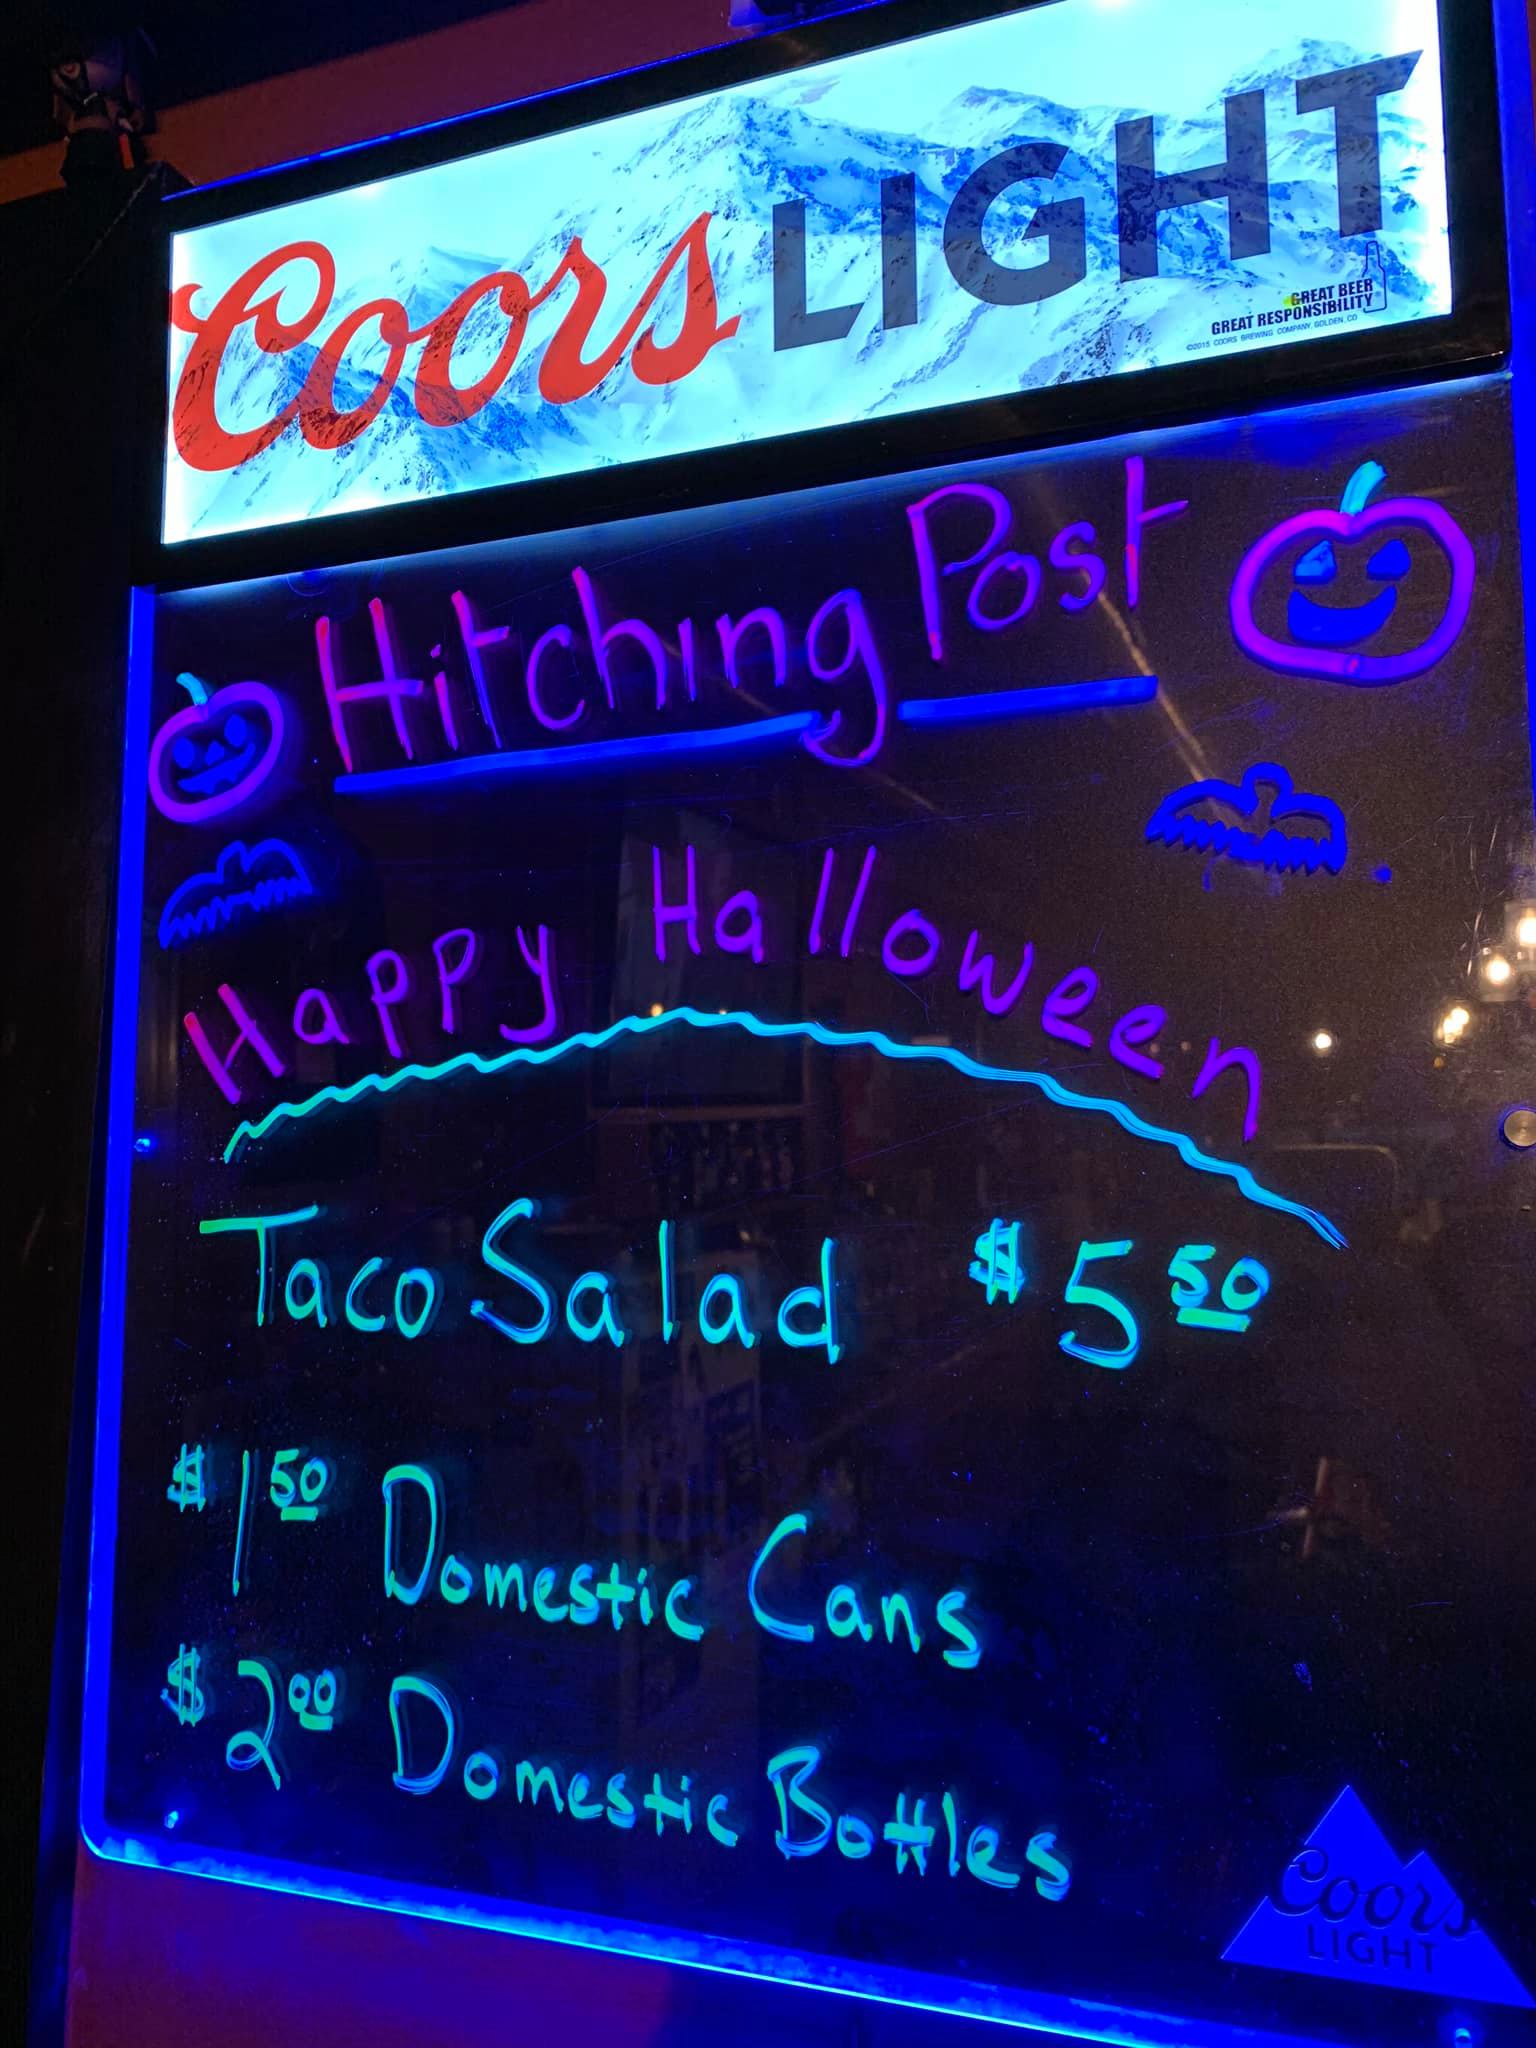 Coors LIGHT
GREAT BEER
GREAT RESPONSIBILITY
©2015 COORS BREWING COMPANY, GOLDEN, CO
Hitching Post
Happy Halloween
Taco Salad $5.50
$1.50 Domestic Cans
$2.00 Domestic Bottles
Coors
LIGHT